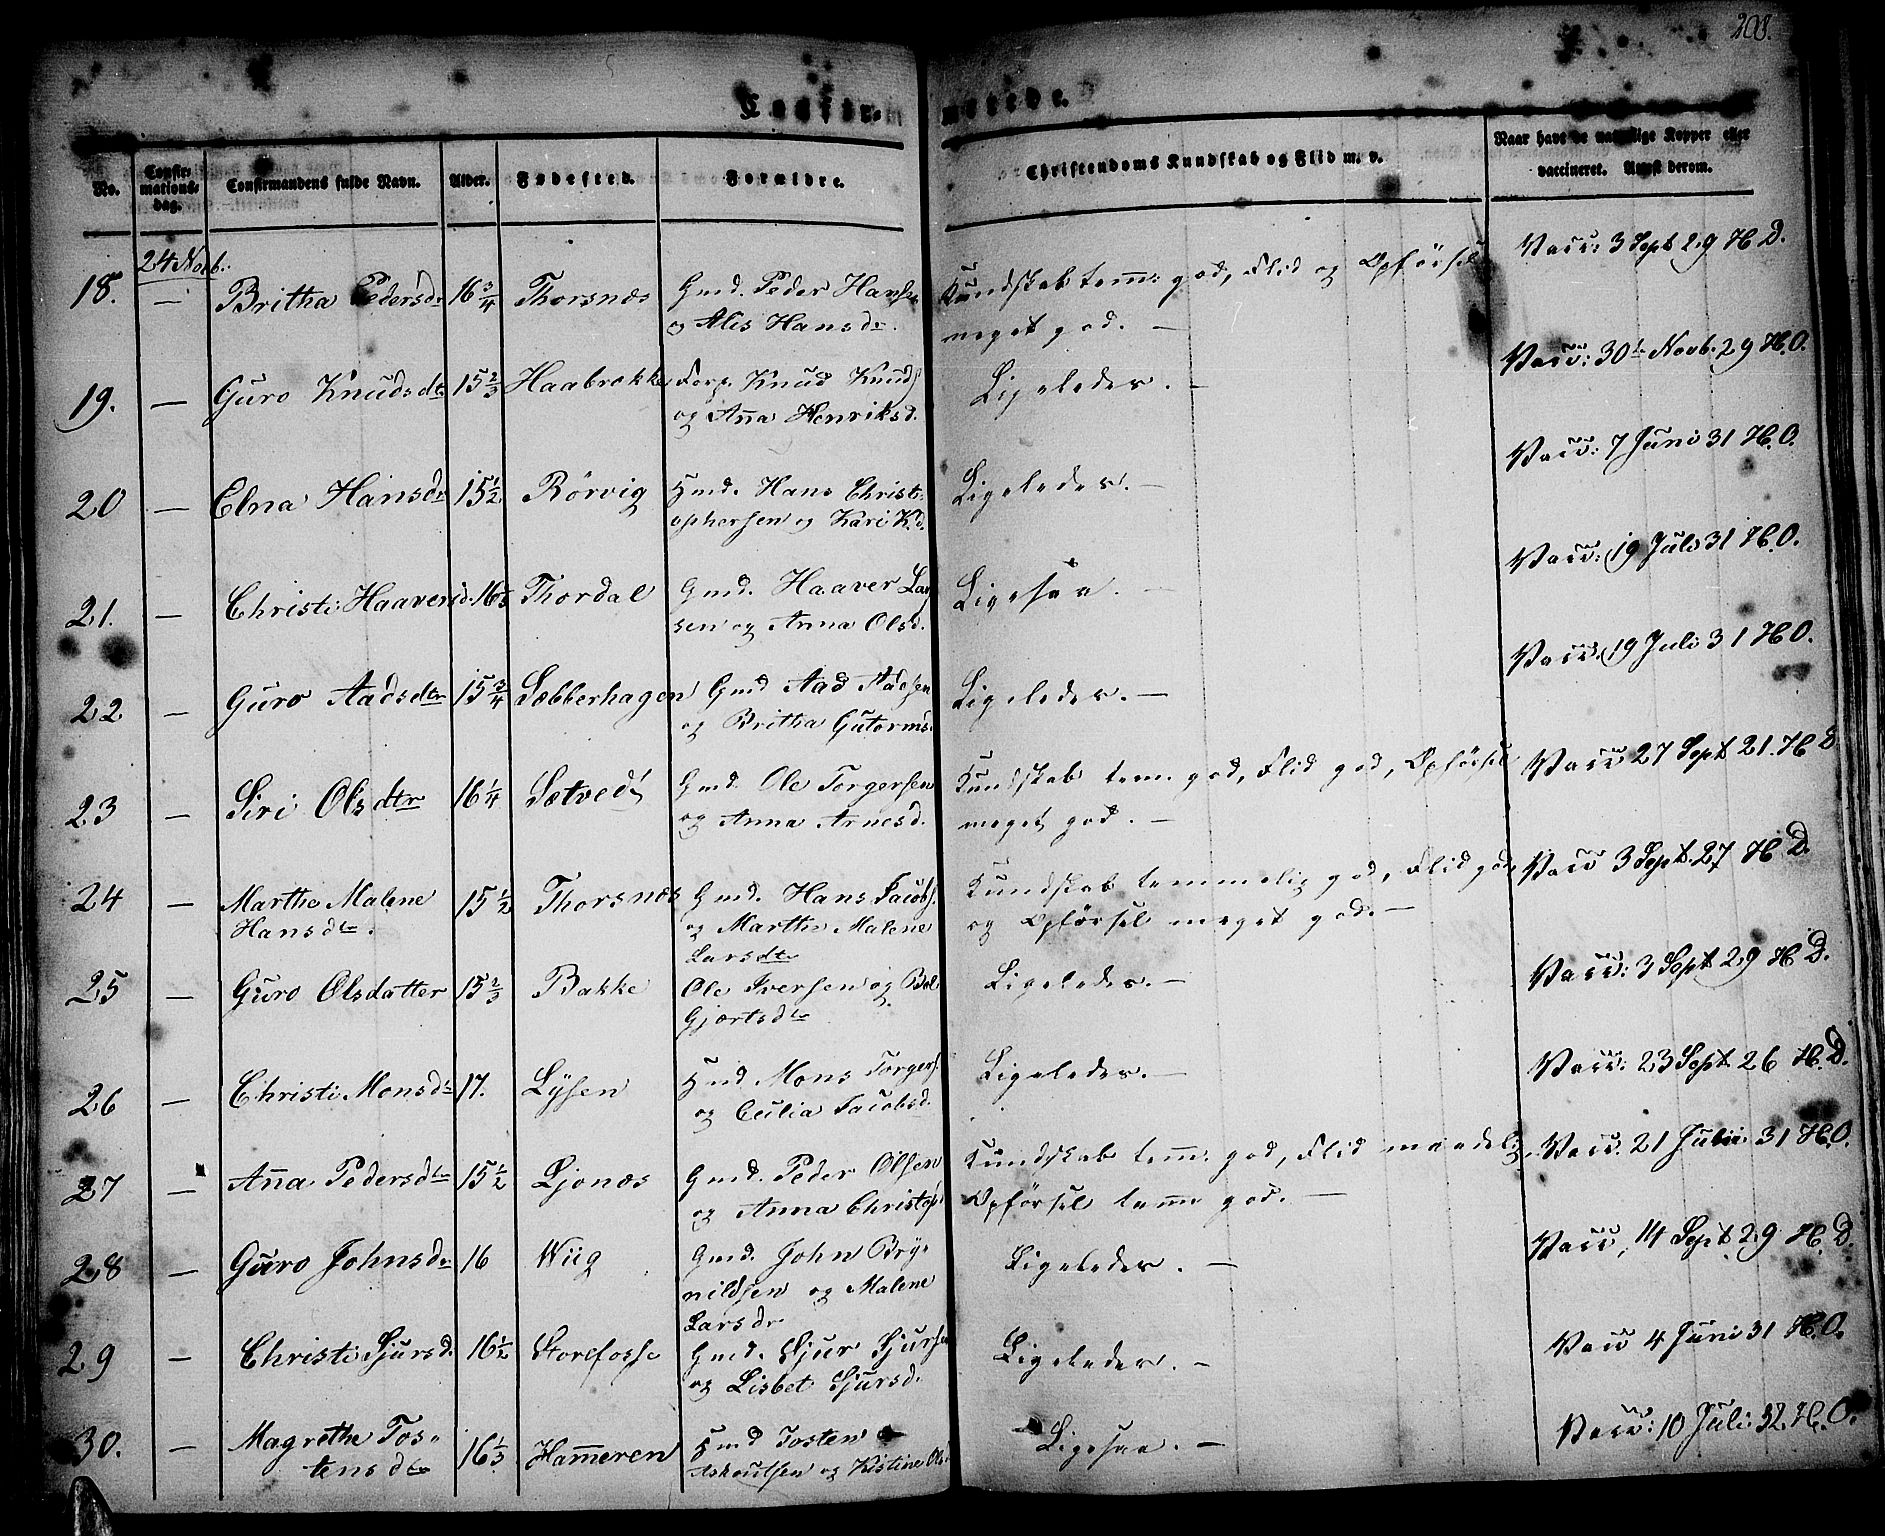 208.
Confir-
merede.
No.
Confir-
mations-
dag.
Confirmandens fulde Navn.
Alder.
Fødested.
Forældre.
Christendoms Kundskab og Flid m. v.
Naar havt de naturlige Kopper eller
vaccineret. Attest derom.
24 Novb.
18. — Britha Pedersdr 16 3/4 Thorsnæs Gmd. Peder Hansen
og Alis Hansdr.
Kundskab tem: god, Flid og Opførsel
meget god. —
Vacc: 3 Sept 29 H D.
19. — Guro Knudsdtr 15 2/3 Haabrække Forp. Knud Knuds
og Anna Henriksd.
Ligeledes. —
Vacc: 30te Novb. 29 H.O.
20 — Elna Hansdr 15 1/2 Rörvig Hmd. Hans Christ-
ophersen og Kari K.d.
Ligeledes. —
Vacc: 7 Juni 31 H.O.
21. — Christi Haaversd. 16 Thordal Gmd. Haaver Lar
sen og Anna Olsd.
Ligesaa. —
Vacc: 19 Juli 31 H.O.
22 — Guro Aadsdtr 15 3/4 Sæbberhagen Gmd Aad Aadsen
og Britha Gutorms
Ligeledes. —
Vacc. 19 Juli 31 H O.
23 — Siri Olsdtr 16 1/4 Sætvedt Gmd. Ole Torgersen
og Anna Arnesd.
Kundskab tem. god, Flid god, Opførsel
meget god. —
Vacc 27 Sept 21. H D
24 — Marthe Malene
Hansdtr. 15 1/2 Thorsnæs Gmd. Hans Jacobs.
og Marthe Malene
Larsdtr
Kundskab temmelig god, Flid god
og Opførsel meget god. —
Vacc 3 Sept. 27 H D.
25 — Guro Olsdatter 15 2/3 Bakke Ole Iversen og
Gjærtsdtr
Ligeledes. —
Vacc: 3 Sept 29 H D.
26 — Christi Monsdr 17. Lysen Hmd. Mons Torgers.
og Cecilia Jacobsd.
Ligeledes. —
Vacc: 23 Sept 26 H.D.
27 — Anna Pedersdtr 15 1/2 Ljonæs Gmd. Peder Olsen
og Anna Christop
Kundskab tem: god, Flid maadelig
Opførsel tem god. —
Vacc. 21 Juli 31 H.O.
28 — Guro Johnsdr 16 Wiig Gmd. John Bry-
nildsen og Malene
Larsdr
Ligeledes. —
Vacc, 14 Sept 29 H.D.
29 — Christi Sjursd. 16 1/2 Storefosse Gmd. Sjur Sjursen
og Lisbet Sjursd.
Ligeledes. —
Vacc 4 Juni 31 H.O.
30. — Magrethe Tos-
tensdtr 16 1/3 Hammeren Hmd Tosten
og Kistine Ols
Ligesaa. —
Vacc: 10 Juli 32. H.O.